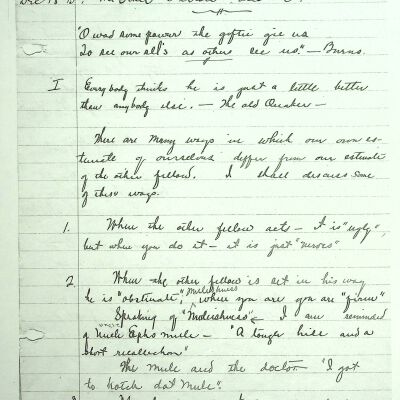 "O wad some power the giftie gie us
To see our all's as others see us." — Burns.
I Everybody thinks he is just a little better
than anybody else. — The old Quaker —
There are many ways in which our own es-
timate of ourselves differ from our estimate
of the other fellow. I shall discuss some
of these ways.
1. When the other fellow acts — it is "ugly",
but when you do it — it is just "nerves"
2. When the other fellow is set in his way
he is "obstinate," when you are you are "firm"
Mulishness
Speaking of "Mulishness" I am reminded
of Uncle Eph's mule — "A tough hide and a
short recollection"
The mule and the doctor "I got
to hotch dat mule".